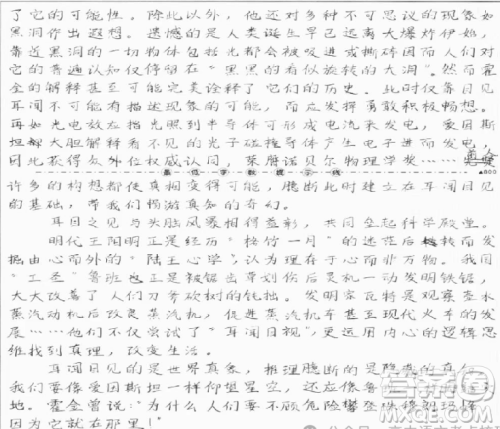 了它的可能性。除此以外，他还对多种不可思议的现象如
黑洞作出遐想。遗憾的是人类诞生早已远离大爆炸伊始，
靠近黑洞的一切物体包括光都会被吸进或撕碎因而人们对
它的普遍认知仅停留在“黑黑的看似旋转的大洞”。然而霍
金的解释甚至可能完美诠释了它们的历史。此时仅靠目见
耳闻不可能有描述现象的可能，而应发挥勇敢积极畅想。
再如光电效应指光照到半导体可形成电流来发电，爱因斯
坦却大胆解释看不见的光子碰撞导体产生电子进而发电，
因此获得众外位权威认同，荣膺诺贝尔物理学奖……
最低字数提示线 ▲800
许多的构想都使真相变得可能，臆断此时建立在耳闻目见
的基础，带我们畅游真知的奇幻。
耳目之见与头脑风暴相得益彰，共同垒起科学殿堂。
明代王阳明正是经历“格竹一月”的迷茫后转而发
掘由心而外的“陆王心学”，认为理存于心而非万物。我国
“工圣”鲁班也正是被锯齿草划伤后灵机一动发明铁锯，
大大改善了人们刀斧砍树的钝拙。发明家瓦特是观察壶水
蒸汽动机后改良蒸汽机，促进蒸汽机车甚至现代火车的发
展……他们不仅尝试了“耳闻目视”，更运用内心的逻辑思
维找到真理，改变生活。
耳闻目见的是世界真象，推理臆断的是隐
我们要像爱因斯坦一样仰望星空，还应像鲁
地。霍金曾说：“为什么人们要不顾危险攀登珠穆朗玛峰
因为它就在那里！”